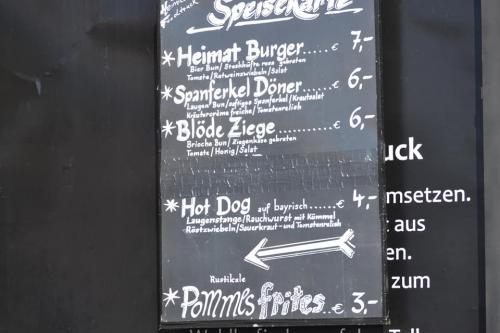 Heimat
Foodtruck
Speisekarte
* Heimat Burger......€ 7,-
Bier Bun/Steakhüfte rosa gebraten
Tomate/Rotweinzwiebeln/Salat
* Spanferkel Döner...€ 6,-
Laugen Bun/saftiges Spanferkel/Krautsalat
Kräutercrème fraiche/Tomatenrelish
* Blöde Ziege..........€ 6,-
Brioche Bun/Ziegenkäse gebraten
Tomate/Honig/Salat
* Hot Dog auf bayrisch.....€ 4,-
Laugenstange/Rauchwurst mit Kümmel
Röstzwiebeln/Sauerkraut- und Tomatenrelish
Rustikale
* Pommes frites...€ 3,-
uck
msetzen.
t aus
en.
zum